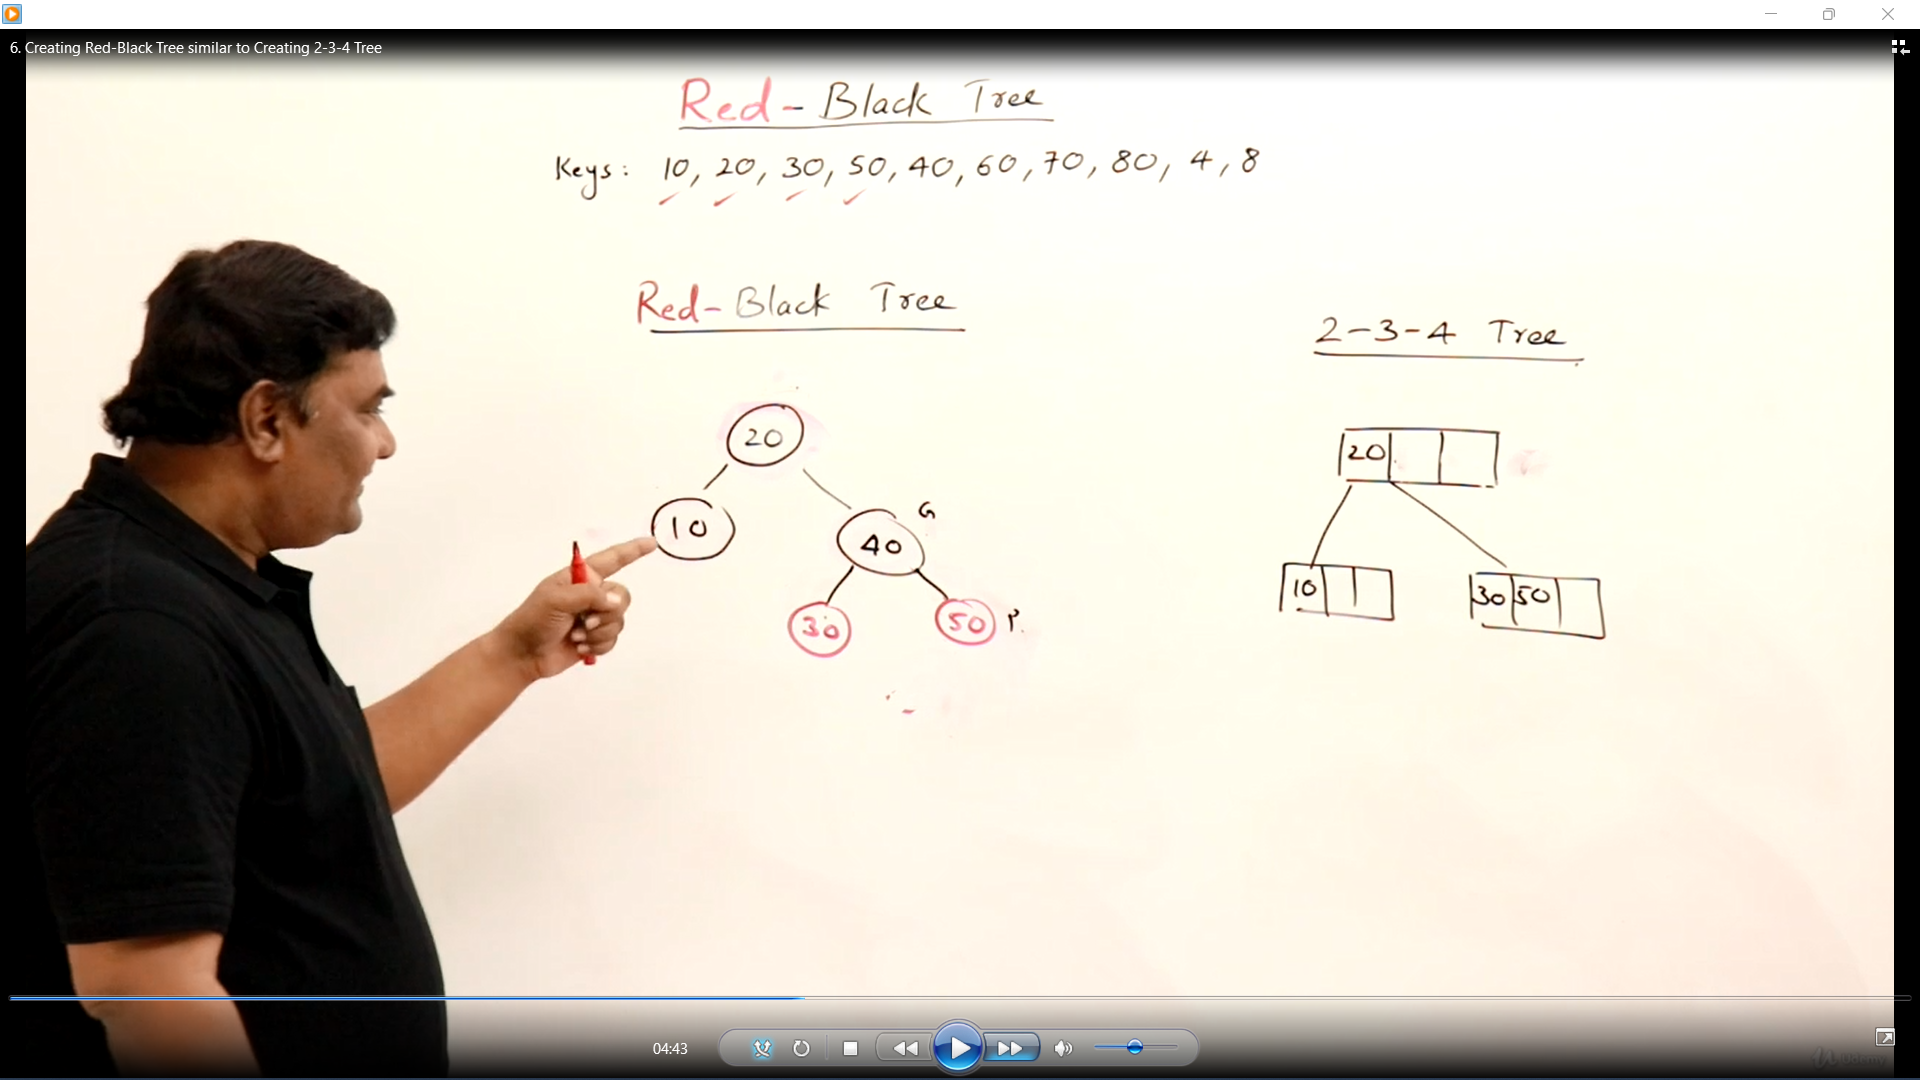 6. Creating Red-Black Tree similar to Creating 2-3-4 Tree
Red-Black Tree
Keys: 10, 20, 30, 50, 40, 60, 70, 80, 4, 8
Red-Black Tree
2-3-4 Tree
20
10
40
G
30
50
P.
20
10
30 50
04:43